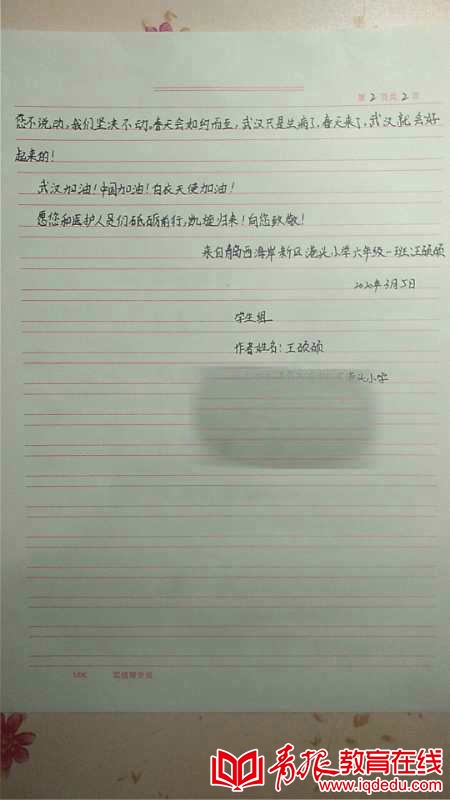 第2页共2页
您不说动,我们坚决不动。春天会如约而至,武汉只是生病了,春天来了,武汉就会好
起来的!
武汉加油!中国加油!白衣天使加油!
愿您和医护人员们砥砺前行,凯旋归来!向您致敬!
来自青岛西海岸新区港头小学六年级一班:王硕硕
2020年3月5日
学生组
作者姓名:王硕硕
头小学
青报教育在线
www.iqdedu.com